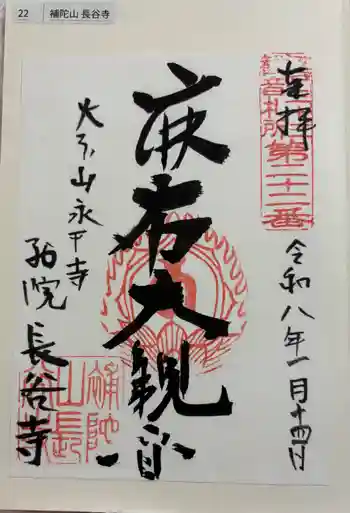 22 補陀山 長谷寺
奉拝
音札所
第二十二番
令和八年一月十四日
麻布大観音
大本山永平寺
別院 長谷寺
補陀
山長